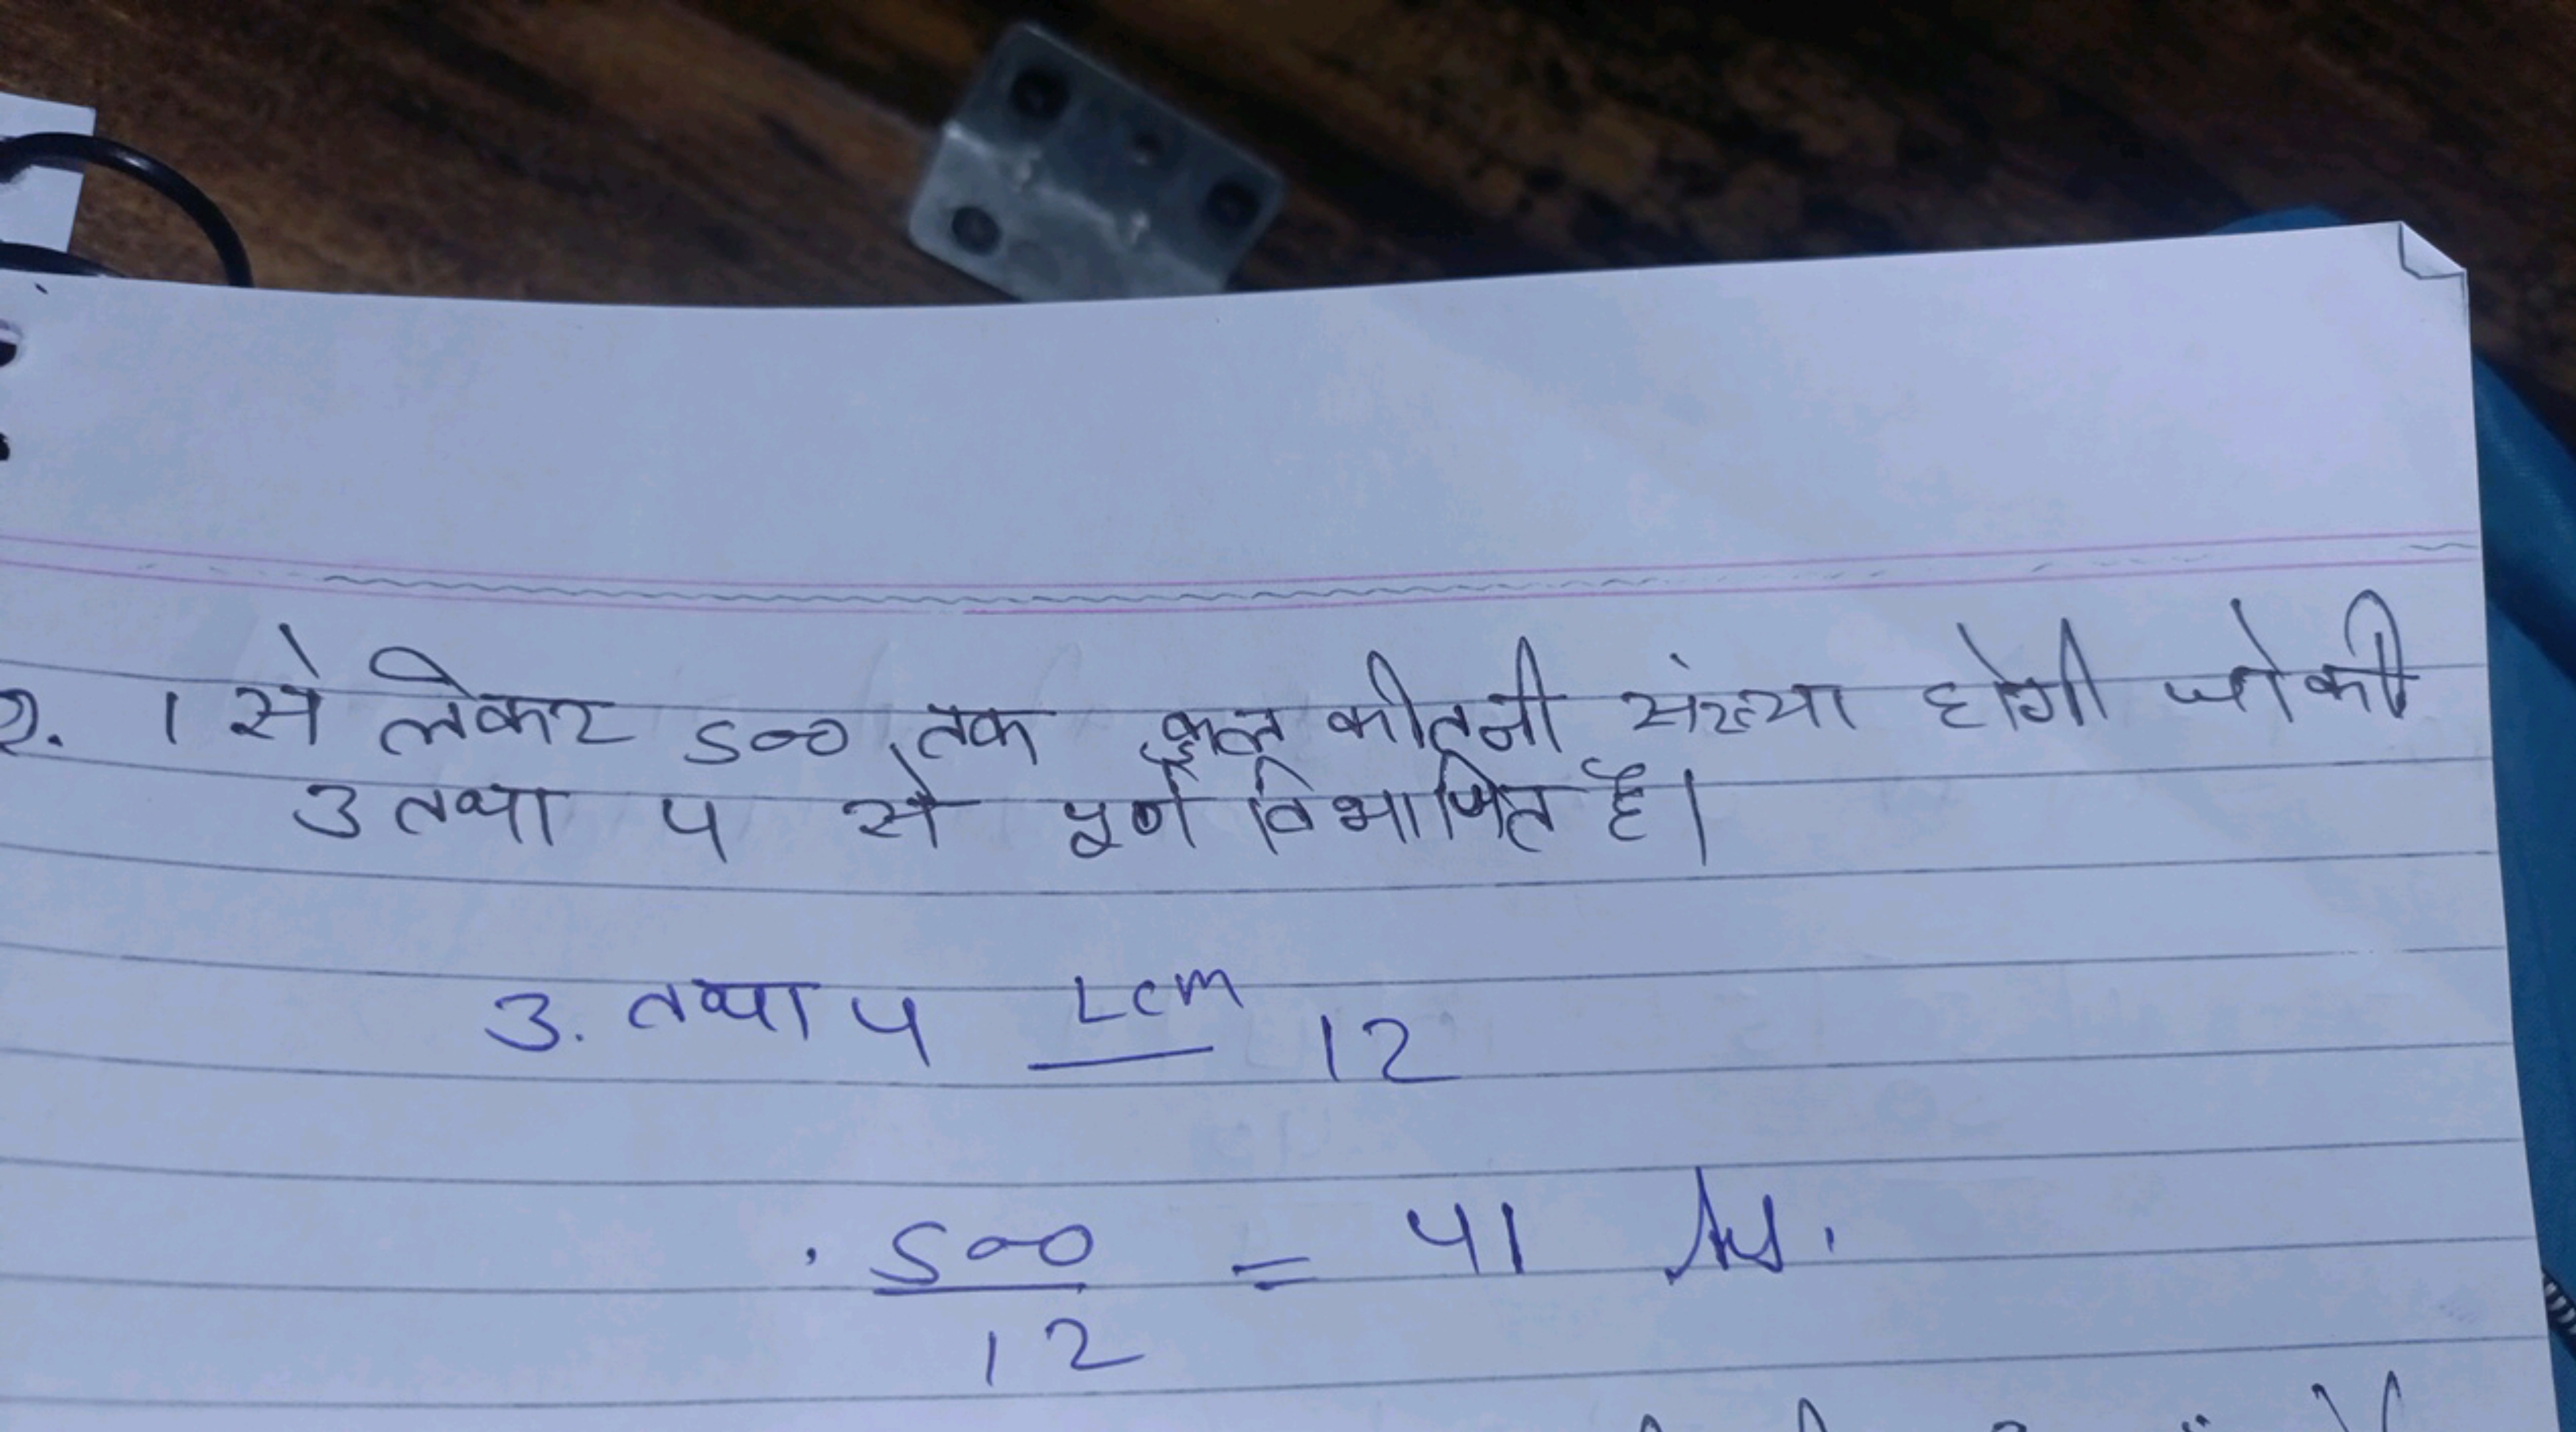 2. 1 से लेकर 500 तक कुल कीतनी संख्या होगी जो की
3 तथा 4 से पूर्ण विभाजित है।
3. तथा 4 LCM 12
500
12
= 41 Ans.